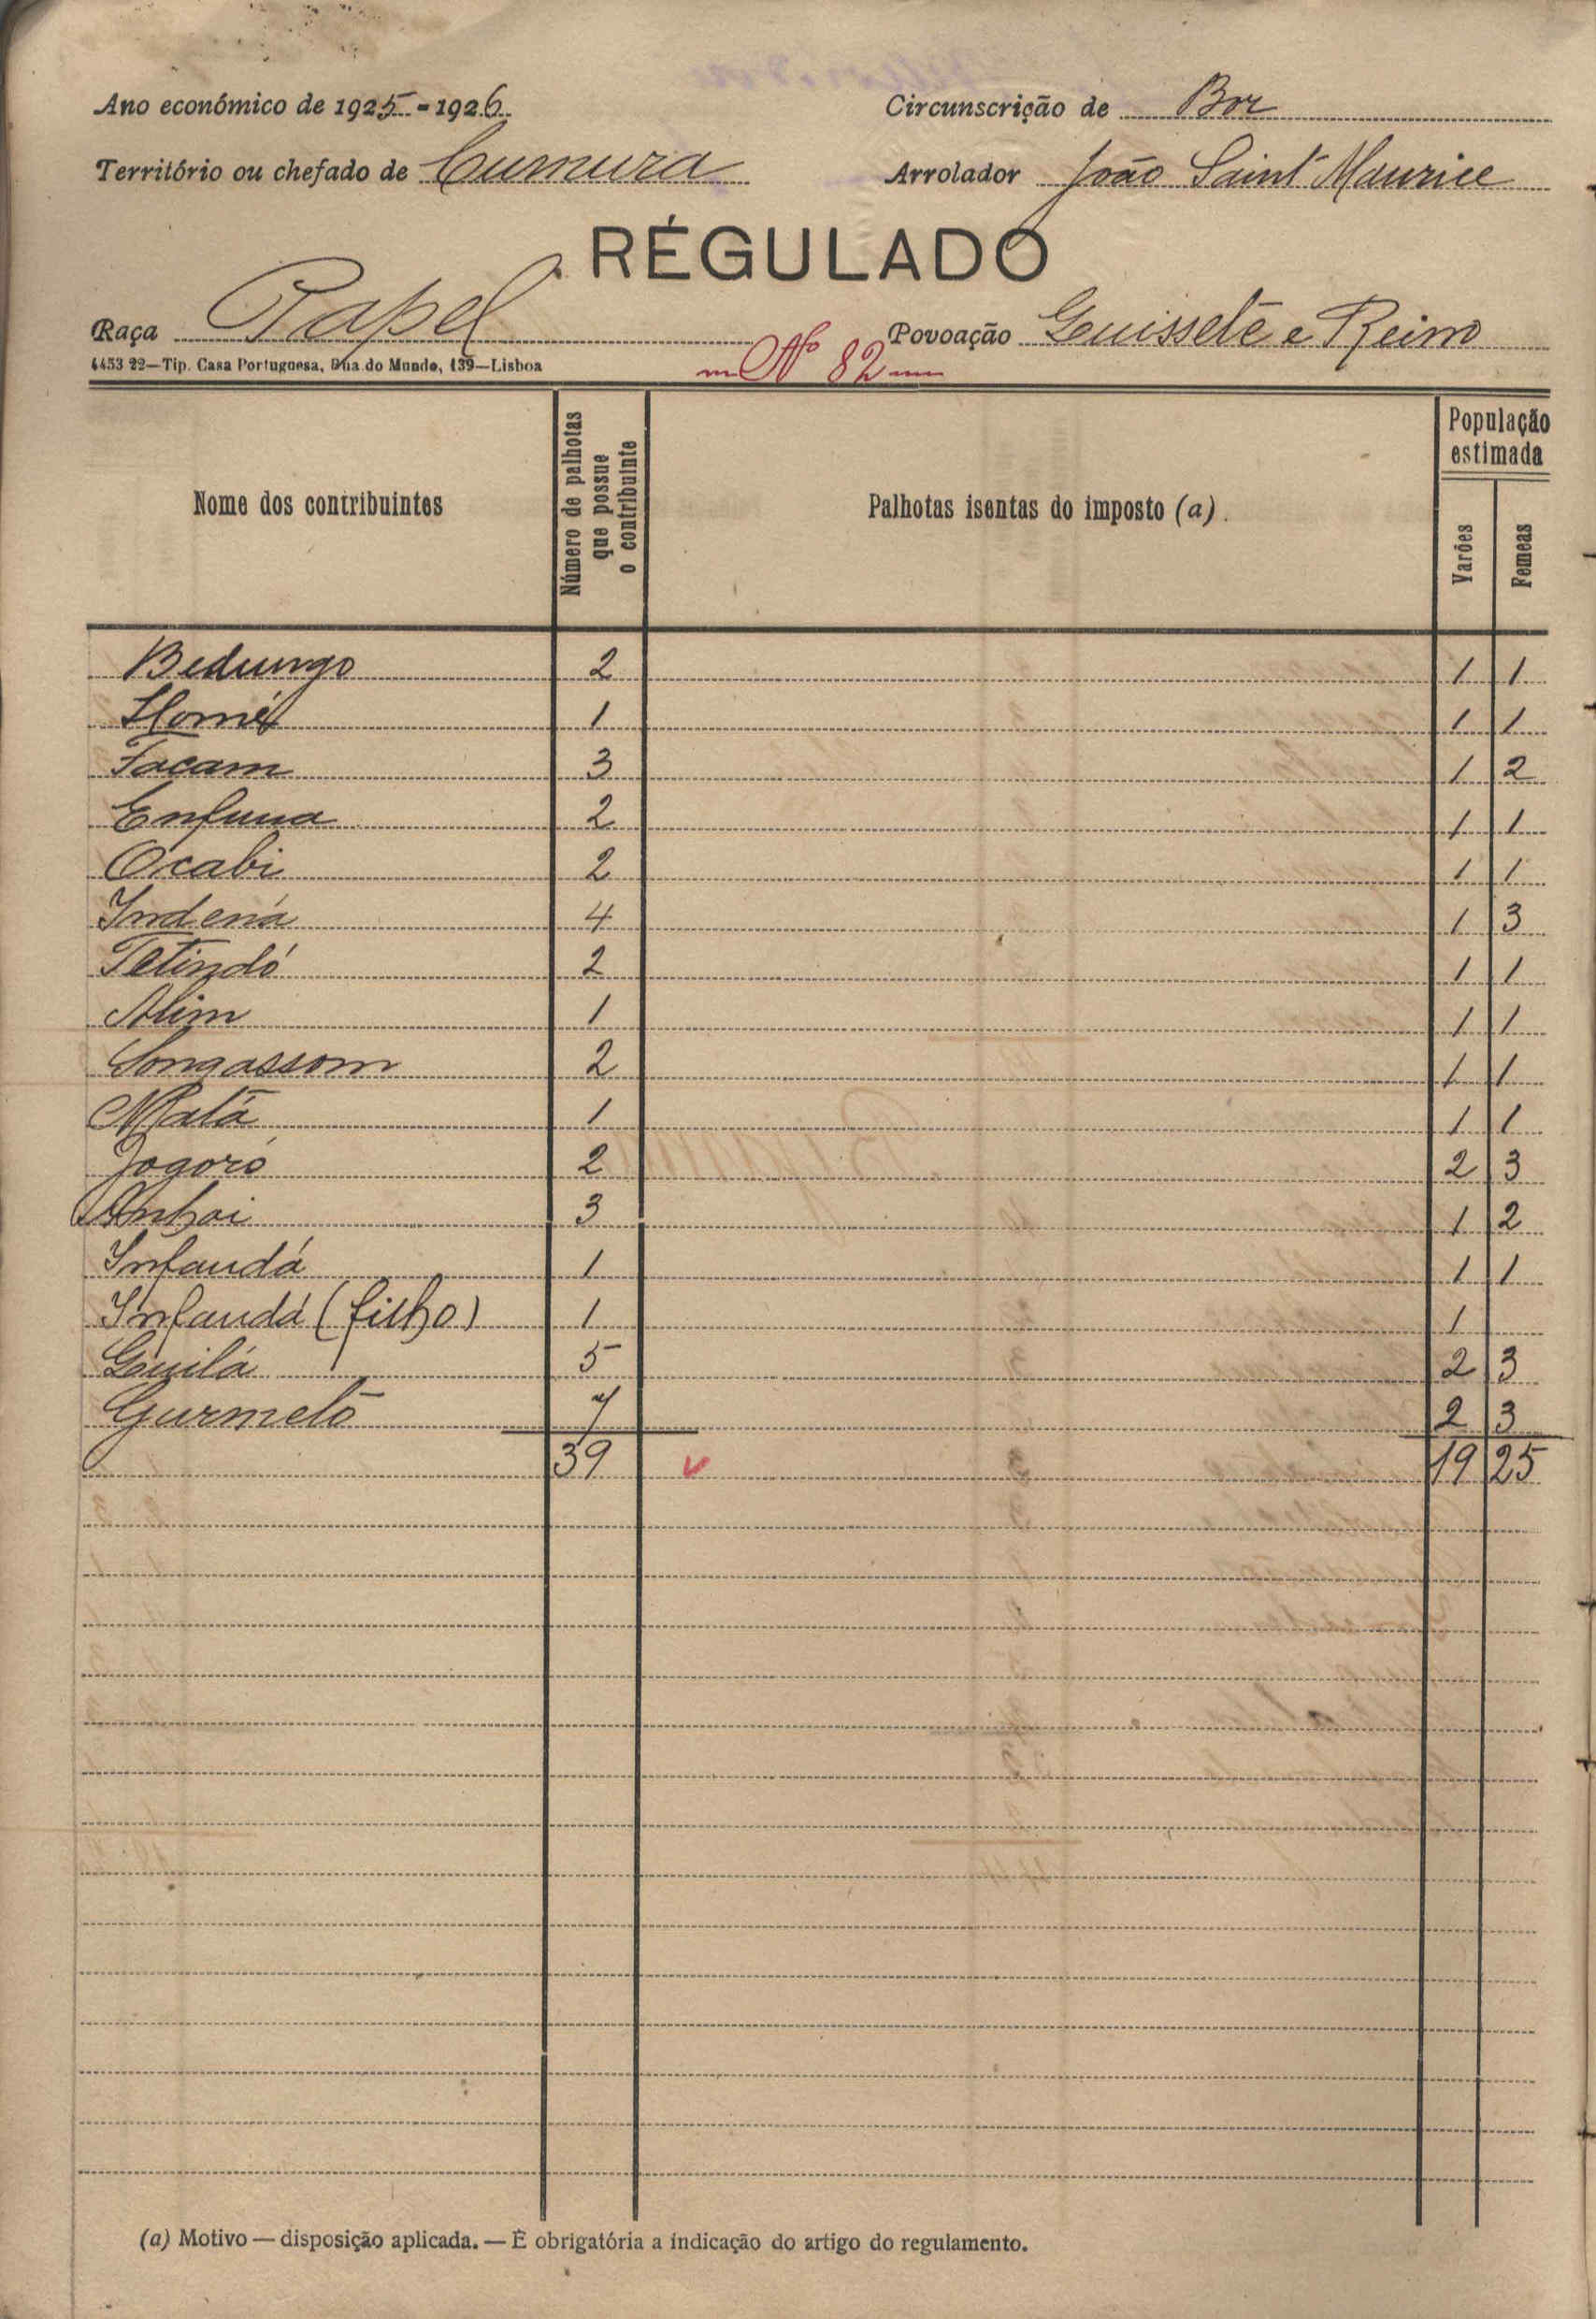 Ano económico de 1925-1926
Circunscrição de Bor
Território ou chefado de Cumura
Arrolador João Saint Maurice
RÉGULADO
Raça Papel
Povoação Guisseté e Reino
4453 22—Tip. Casa Portuguesa, Rua do Mundo, 139—Lisboa
Nº 82
Nome dos contribuintes
Número de palhotas que possue o contribuinte
Palhotas isentas do imposto (a).
População estimada
Varões Femeas
Bedungo 2 1 1
1 1 1
Facam 3 1 2
Enfuna 2 1 1
Ocabi 2 1 1
Indená 4 1 3
Tetindó 2 1 1
Alim 1 1 1
Songassom 2 1 1
Matá 1 1 1
Jogoró 2 2 3
Anhoi 3 1 2
Infaudá 1 1 1
Infaudá (filho) 1 1
Guilá 5 2 3
Gurmeló 7 2 3
39 19 25
(a) Motivo — disposição aplicada. — É obrigatória a indicação do artigo do regulamento.